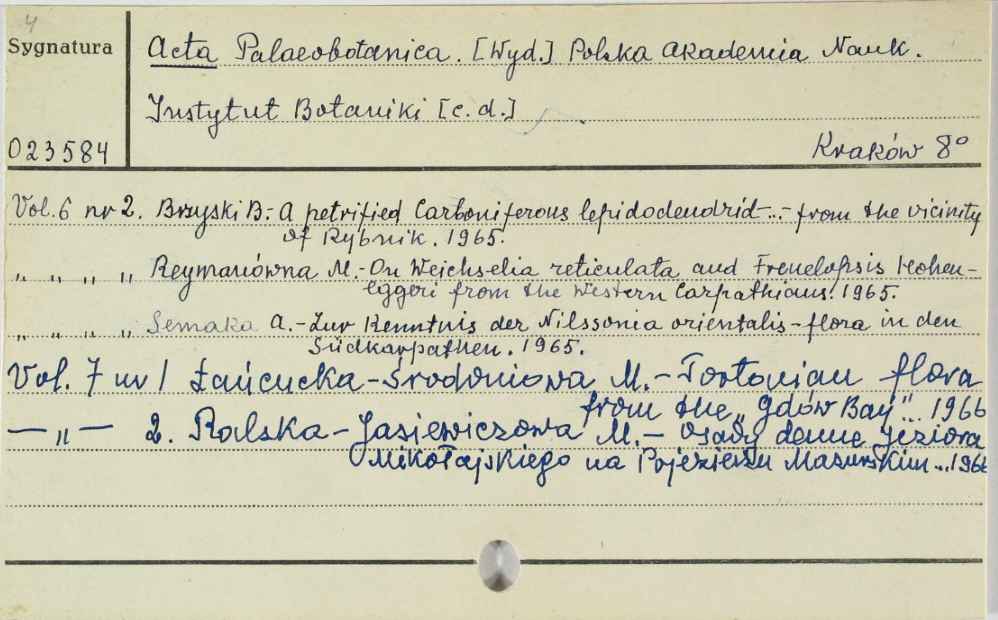 4
Sygnatura
Acta Palaeobotanica. [Wyd.] Polska Akademia Nauk.
Instytut Botaniki [c.d.]
023584
Kraków 8°
Vol. 6 nr 2. Brzyski B.- A petrified Carboniferous lepidodendrid...- from the vicinity
of Rybnik. 1965.
„ „ „ „ Reymanówna M.- On Weichselia reticulata and Frenelopsis Hohen-
eggeri from the Western Carpathians. 1965.
„ „ „ „ Semaka A.- Zur Kenntnis der Nilssonia orientalis-flora in den
Südkarpathen. 1965.
Vol. 7 nr 1 Łańcucka-Środoniowa M.- Tortonian flora
from the „Gdów Bay"... 1966
— „ — 2. Ralska-Jasiewiczowa M.- Osady denne Jeziora
Mikołajskiego na Pojezierzu Mazurskim... 1966